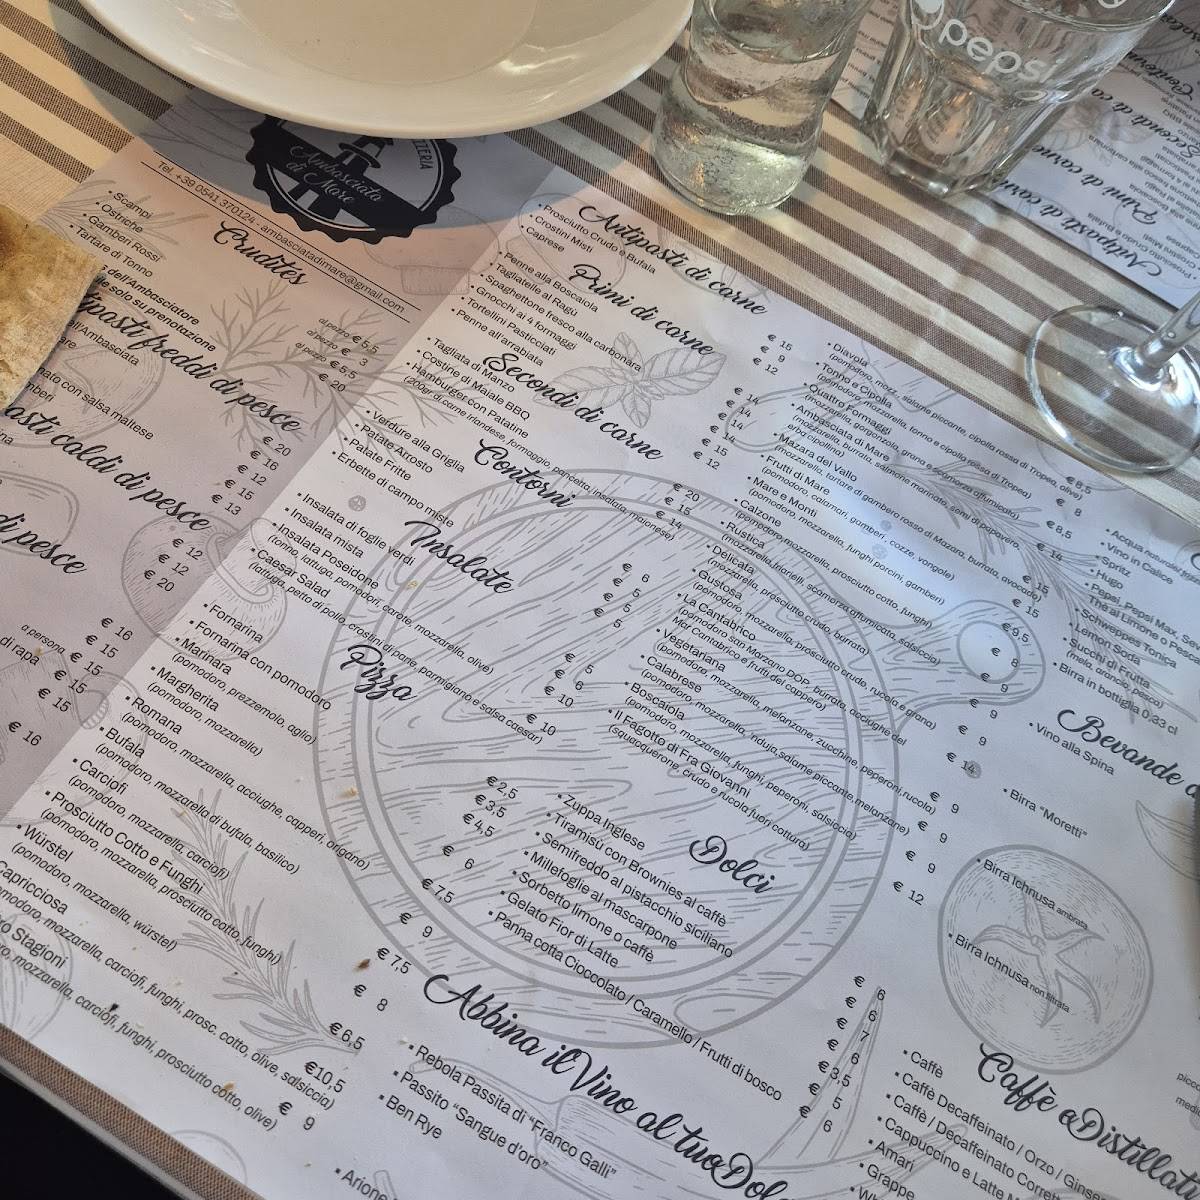 pepsi
PIZZERIA
Ambasciata
di Mare
Tel. +39 0541 370124 - ambasciatadimare@gmail.com
Crudités
• Scampi
• Ostriche
• Gamberi Rossi
• Tartare di Tonno
dell'Ambasciatore
solo su prenotazione
al pezzo € 5,5
al pezzo € 3
al pezzo € 5,5
€ 20
freddi di pesce
dell'Ambasciata
con salsa maltese
€ 20
€ 16
€ 12
€ 15
€ 13
caldi di pesce
€ 12
€ 12
€ 20
di pesce
€ 16
€ 15
a persona € 15
€ 15
€ 15
€ 16
Antipasti di carne
• Prosciutto Crudo e Bufala
• Crostini Misti
• Caprese
€ 15
€ 9
€ 12
Primi di carne
• Penne alla Boscaiola
• Tagliatelle al Ragù
• Spaghettone fresco alla carbonara
• Gnocchi ai 4 formaggi
• Tortellini Pasticciati
• Penne all'arrabiata
€ 14
€ 14
€ 14
€ 14
€ 15
€ 12
Secondi di carne
• Tagliata di Manzo
• Costine di Maiale BBQ
• Hamburger con Patatine
(200gr di carne irlandese, formaggio, pancetta, insalata, maionese)
€ 20
€ 15
€ 14
Contorni
• Verdure alla Griglia
• Patate Arrosto
• Patate Fritte
• Erbette di campo miste
€ 6
€ 5
€ 5
€ 5
Insalate
• Insalata di foglie verdi
• Insalata mista
• Insalata Poseidone
(tonno, lattuga, pomodori, carote, mozzarella, olive)
• Caesar Salad
(lattuga, petto di pollo, crostini di pane, parmigiano e salsa caesar)
€ 5
€ 6
€ 10
€ 10
Pizza
• Fornarina
• Fornarina con pomodoro
• Marinara
(pomodoro, prezzemolo, aglio)
• Margherita
(pomodoro, mozzarella)
• Romana
(pomodoro, mozzarella, acciughe, capperi, origano)
• Bufala
(pomodoro, mozzarella di bufala, basilico)
• Carciofi
(pomodoro, mozzarella, carciofi)
• Prosciutto Cotto e Funghi
(pomodoro, mozzarella, prosciutto cotto, funghi)
• Würstel
(pomodoro, mozzarella, würstel)
Capricciosa
mozzarella, carciofi, funghi, prosc. cotto, olive, salsiccia)
Stagioni
mozzarella, carciofi, funghi, prosciutto cotto, olive)
€ 2,5
€ 3,5
€ 4,5
€ 6
€ 7,5
€ 9
€ 7,5
€ 8
€ 6,5
€ 10,5
€ 9
• Diavola
(pomodoro, mozz., salame piccante, cipolla rossa di Tropea, olive)
• Tonno e Cipolla
(pomodoro, mozzarella, tonno e cipolla rossa di Tropea)
• Quattro Formaggi
(mozzarella, gorgonzola, grana e scamorza affumicata)
• Ambasciata di Mare
(mozzarella, burrata, salmone marinato, semi di papavero,
erba cipollina)
• Mazara del Vallo
(mozzarella, tartare di gambero rosso di Mazara, burrata, avocado)
• Frutti di Mare
(pomodoro, calamari, gamberi, cozze, vongole)
• Mare e Monti
(pomodoro, mozzarella, funghi porcini, gamberi)
• Calzone
(pomodoro, mozzarella, prosciutto cotto, funghi)
• Rustica
(mozzarella, friarielli, scamorza affumicata, salsiccia)
• Delicata
(mozzarella, prosciutto crudo, burrata)
• Gustosa
(pomodoro, mozzarella, prosciutto crudo, rucola e grana)
• La Cantabrico
(pomodoro san Marzano DOP, burrata, acciughe del
Mar Cantabrico e frutti del cappero)
• Vegetariana
(pomodoro, mozzarella, melanzane, zucchine, peperoni, rucola)
• Calabrese
(pomodoro, mozzarella, 'nduja, salame piccante, melanzane)
• Boscaiola
(pomodoro, mozzarella, funghi, peperoni, salsiccia)
• Il Fagotto di Fra Giovanni
(squacquerone, crudo e rucola fuori cottura)
€ 8,5
€ 8
€ 8,5
€ 14
€ 15
€ 15
€ 9,5
€ 8
€ 9
€ 9
€ 9
€ 14
€ 9
€ 9
€ 9
€ 12
Dolci
• Zuppa Inglese
• Tiramisù con Brownies al caffè
• Semifreddo al pistacchio siciliano
• Millefoglie al mascarpone
• Sorbetto limone o caffè
• Gelato Fior di Latte
• Panna cotta Cioccolato / Caramello / Frutti di bosco
€ 6
€ 6
€ 7
€ 6
€ 3,5
€ 5
€ 6
Abbina il Vino al tuo
• Rebola Passita di "Franco Galli"
• Passito "Sangue d'oro"
• Ben Rye
• Acqua naturale
• Vino in Calice
• Spritz
• Hugo
• Pepsi, Pepsi Max,
Thè al Limone o Pesca
• Schweppes Tonica
• Lemon Soda
• Succhi di Frutta
(mela, arancio, pesca)
• Birra in bottiglia 0,33 cl
Bevande
• Vino alla Spina
• Birra "Moretti"
• Birra Ichnusa ambrata
• Birra Ichnusa non filtrata
Caffè e Distillati
• Caffè
• Caffè Decaffeinato / Orzo /
• Caffè / Decaffeinato
• Cappuccino e Latte
• Amari
• Grappe